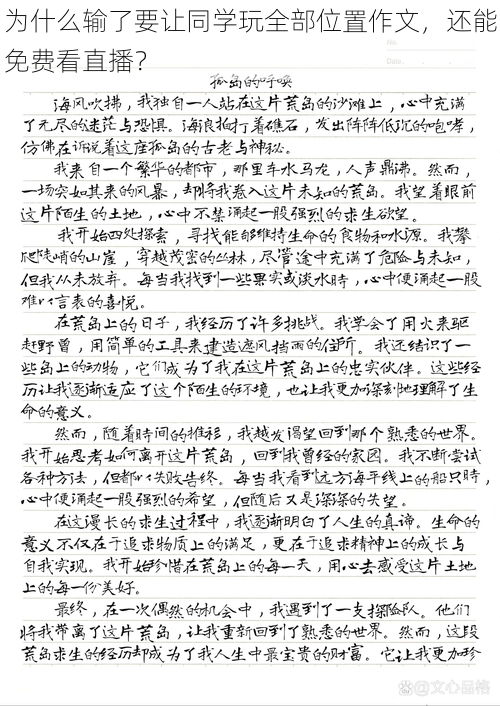 为什么输了要让同学玩全部位置作文，还能
免费看直播？
No.
Date.
孤岛的呼唤
海风吹拂，我独自一人站在这片荒岛的沙滩上，心中充满
了无尽的迷茫与恐惧。海浪拍打着礁石，发出阵阵低沉的咆哮，
仿佛在诉说着这座孤岛的古老与神秘。
我来自一个繁华的都市，那里车水马龙，人声鼎沸。然而，
一场突如其来的风暴，却将我卷入这片未知的荒岛。我望着眼前
这片陌生的土地，心中不禁涌起一股强烈的求生欲望。
我开始四处探索，寻找能够维持生命的食物和水源。我攀
爬陡峭的山崖，穿越茂密的丛林，尽管途中充满了危险与未知，
但我从未放弃。每当我找到一些果实或淡水时，心中便涌起一股
难以言表的喜悦。
在荒岛上的日子，我经历了许多挑战。我学会了用火来驱
赶野兽，用简单的工具来建造遮风挡雨的住所。我还结识了一
些岛上的动物，它们成为了我在这片荒岛上的忠实伙伴。这些经
历让我逐渐适应了这个陌生的环境，也让我更加深刻地理解了生
命的意义。
然而，随着时间的推移，我越发渴望回到那个熟悉的世界。
我开始思考如何离开这片荒岛，回到我曾经的家园。我不断尝试
各种方法，但都以失败告终。每当我看到远方海平线上的船只时，
心中便涌起一股强烈的希望，但随后又是深深的失望。
在这漫长的求生过程中，我逐渐明白了人生的真谛。生命的
意义不仅在于追求物质上的满足，更在于追求精神上的成长与
自我实现。我开始珍惜在荒岛上的每一天，用心去感受这片土地
上的每一份美好。
最终，在一次偶然的机会中，我遇到了一支探险队。他们
将我带离了这片荒岛，让我重新回到了熟悉的世界。然而，这段
荒岛求生的经历却成为了我人生中最宝贵的财富。它让我更加珍
@文心品格